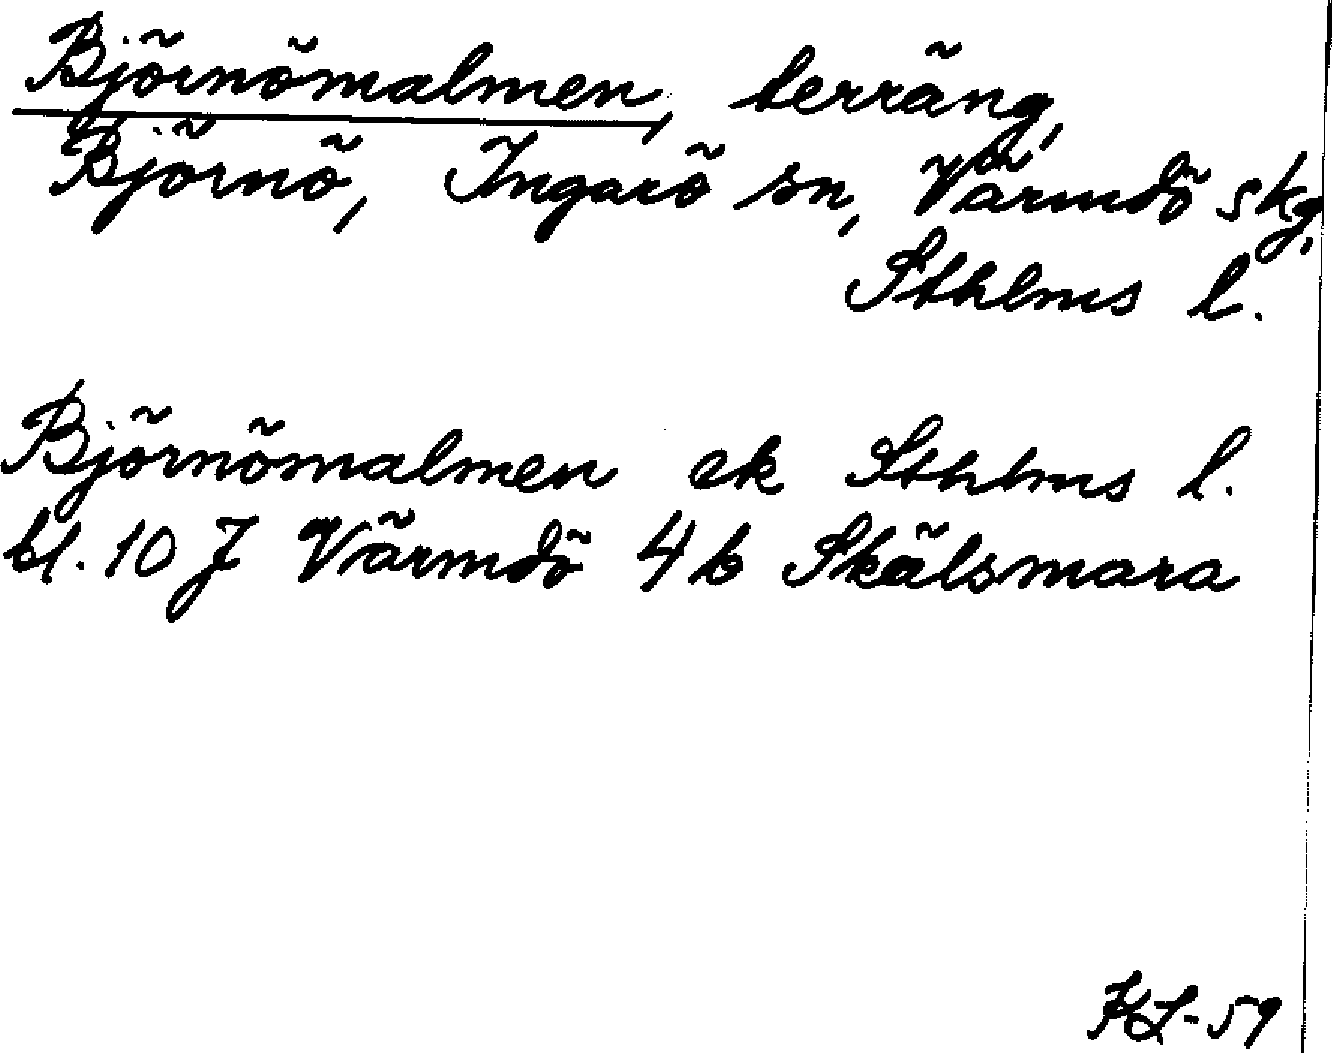 Björnömalmen, terräng,
Björnö, Ingarö sn, Värmdö skg,
Sthlms l.
Björnömalmen ek Sthlms l.
bl. 10 J Värmdö 4 b Skälsmara
KL-59